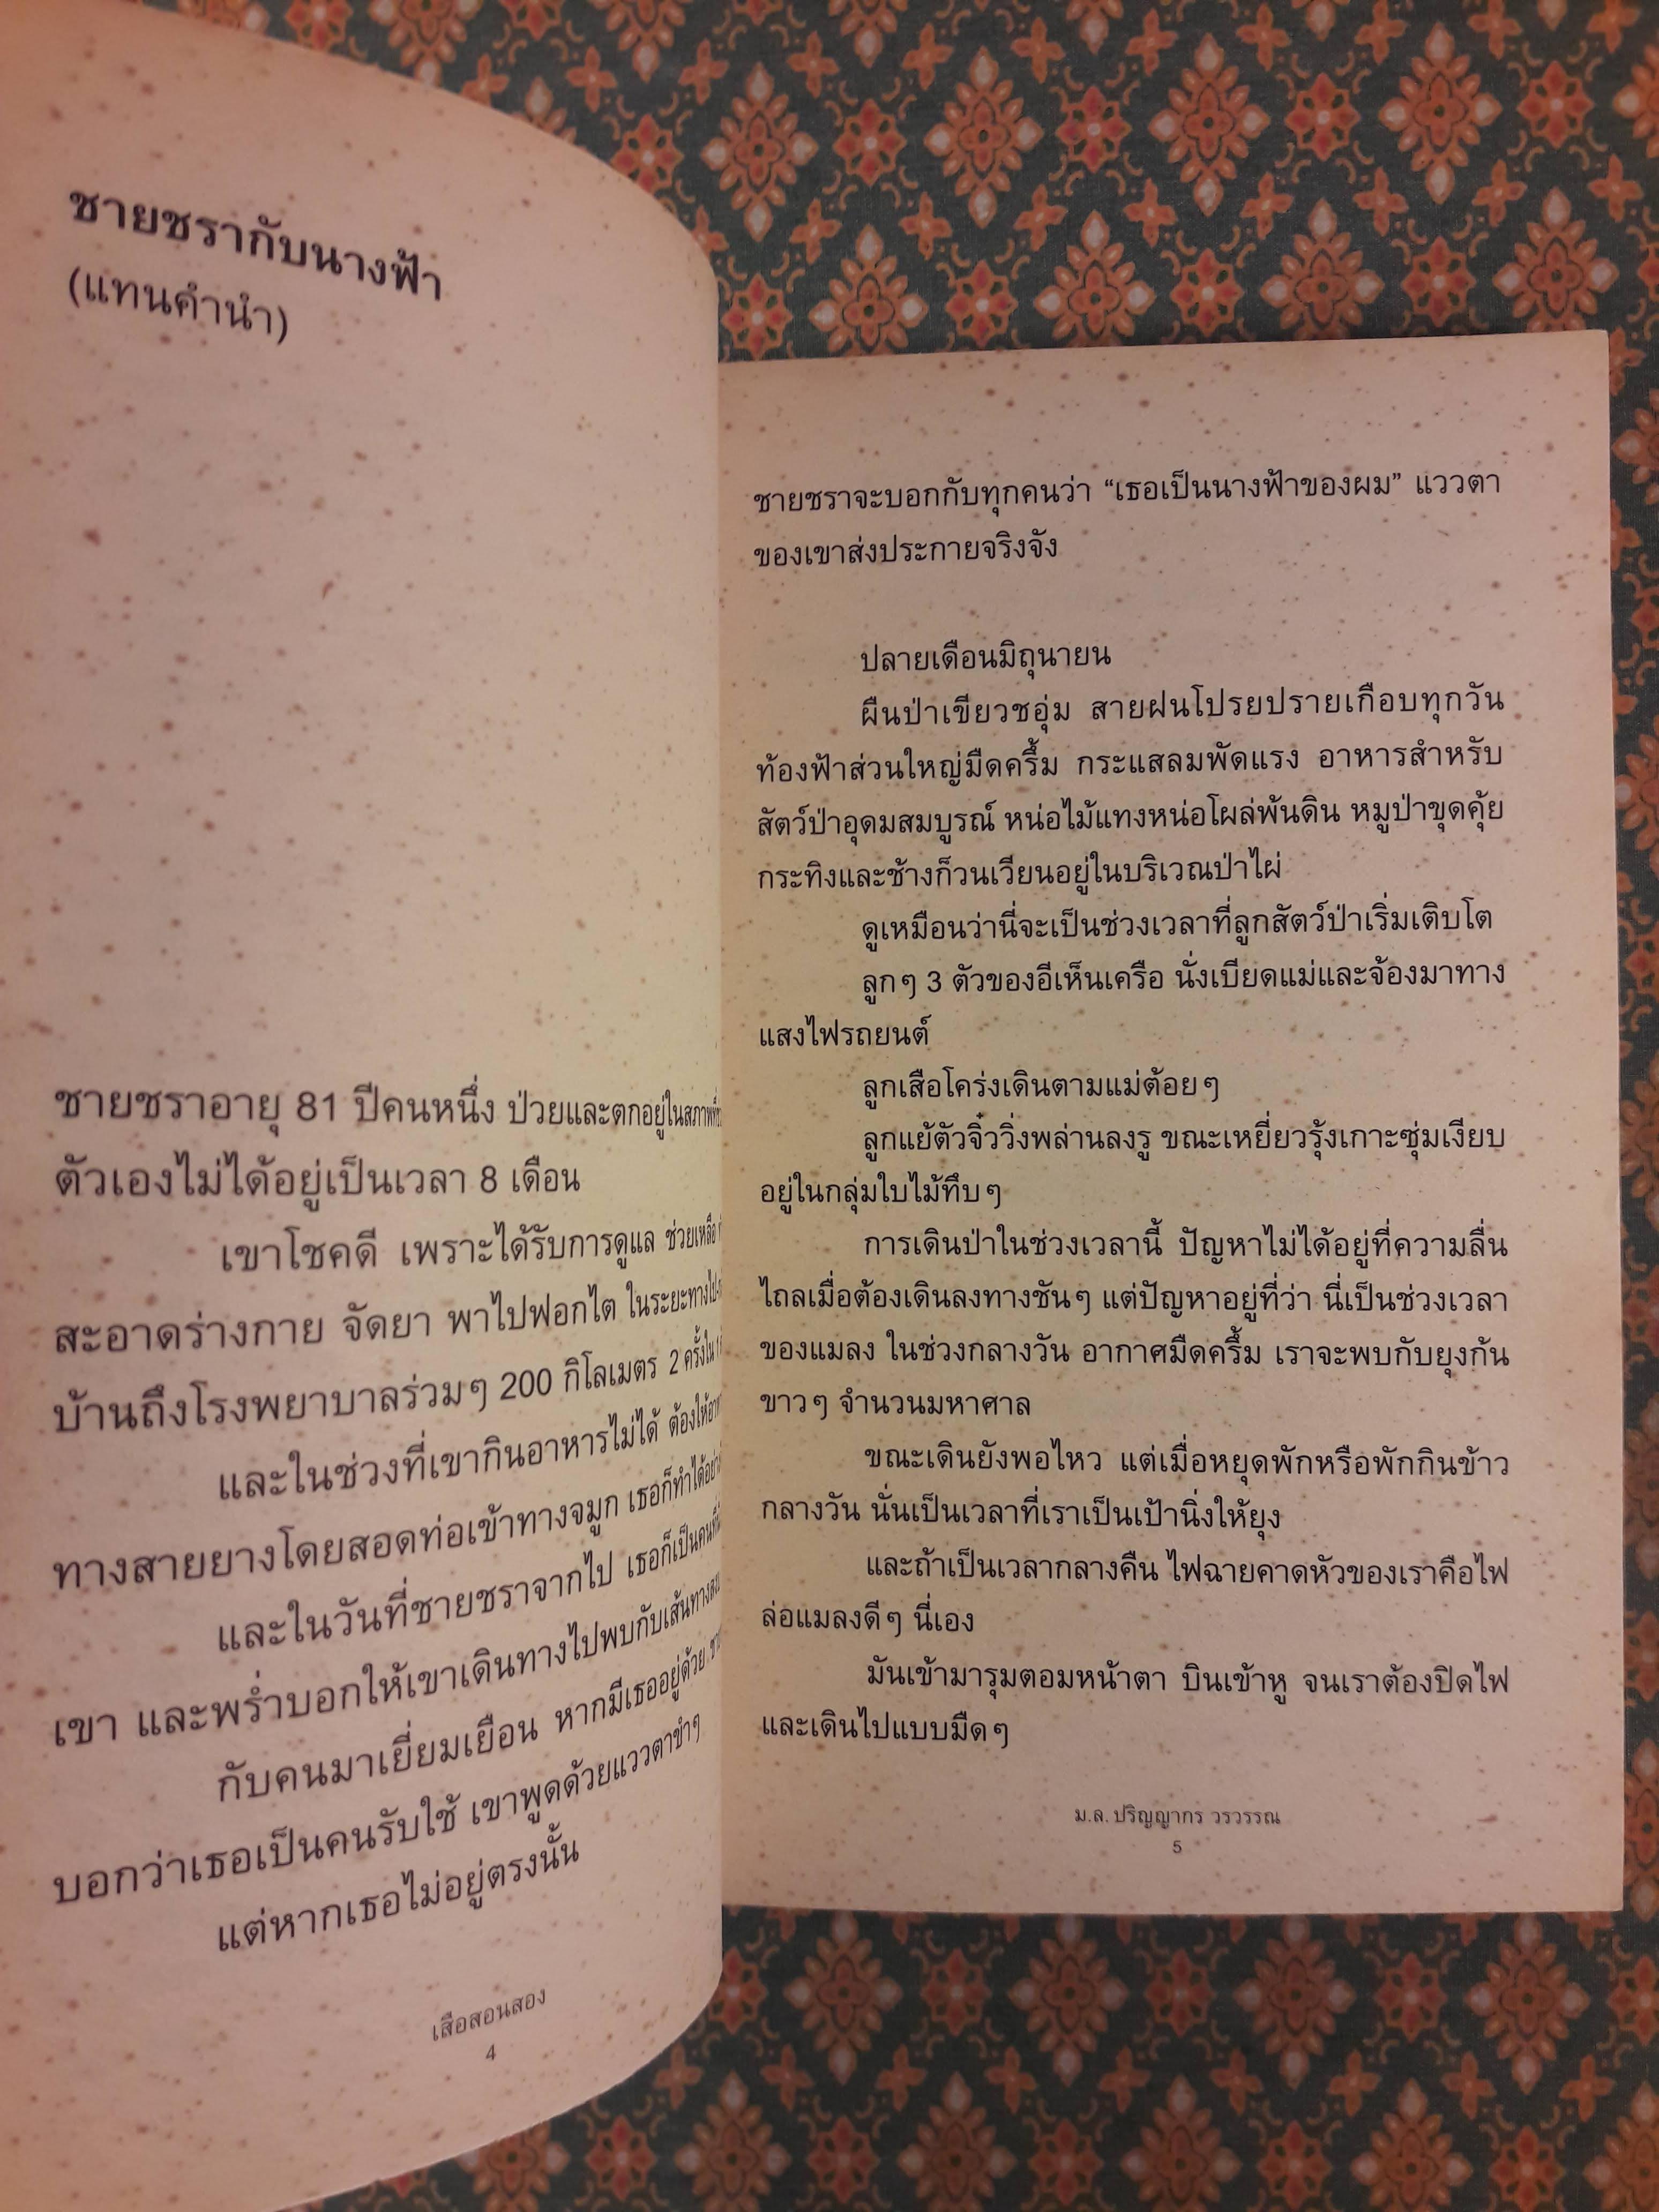 ชายชรากับนางฟ้า
(แทนคำนำ)
ชายชราอายุ 81 ปีคนหนึ่ง ป่วยและตกอยู่ในสภาพที่
ตัวเองไม่ได้อยู่เป็นเวลา 8 เดือน
เขาโชคดี เพราะได้รับการดูแล ช่วยเหลือ
สะอาดร่างกาย จัดยา พาไปฟอกไต ในระยะทางไป
บ้านถึงโรงพยาบาลร่วมๆ 200 กิโลเมตร 2 ครั้งใน
และในช่วงที่เขากินอาหารไม่ได้ ต้องให้
ทางสายยางโดยสอดท่อเข้าทางจมูก เธอก็ทำได้
และในวันที่ชายชราจากไป เธอก็เป็นคนที่
เขา และพร่ำบอกให้เขาเดินทางไปพบกับเส้นทาง
กับคนมาเยี่ยมเยือน หากมีเธออยู่ด้วย
บอกว่าเธอเป็นคนรับใช้ เขาพูดด้วยแววตาขำๆ
แต่หากเธอไม่อยู่ตรงนั้น
เสือสอนสอง
4
ชายชราจะบอกกับทุกคนว่า “เธอเป็นนางฟ้าของผม” แววตา
ของเขาส่งประกายจริงจัง
ปลายเดือนมิถุนายน
ผืนป่าเขียวชอุ่ม สายฝนโปรยปรายเกือบทุกวัน
ท้องฟ้าส่วนใหญ่มืดครึ้ม กระแสลมพัดแรง อาหารสำหรับ
สัตว์ป่าอุดมสมบูรณ์ หน่อไม้แทงหน่อโผล่พ้นดิน หมูป่าขุดคุ้ย
กระทิงและช้างก็วนเวียนอยู่ในบริเวณป่าไผ่
ดูเหมือนว่านี่จะเป็นช่วงเวลาที่ลูกสัตว์ป่าเริ่มเติบโต
ลูกๆ 3 ตัวของอีเห็นเครือ นั่งเบียดแม่และจ้องมาทาง
แสงไฟรถยนต์
ลูกเสือโคร่งเดินตามแม่ต้อยๆ
ลูกแย้ตัวจิ๋ววิ่งพล่านลงรู ขณะเหยี่ยวรุ้งเกาะซุ่มเงียบ
อยู่ในกลุ่มใบไม้ทึบๆ
การเดินป่าในช่วงเวลานี้ ปัญหาไม่ได้อยู่ที่ความลื่น
ไถลเมื่อต้องเดินลงทางชันๆ แต่ปัญหาอยู่ที่ว่า นี่เป็นช่วงเวลา
ของแมลง ในช่วงกลางวัน อากาศมืดครึ้ม เราจะพบกับยุงก้น
ขาวๆ จำนวนมหาศาล
ขณะเดินยังพอไหว แต่เมื่อหยุดพักหรือพักกินข้าว
กลางวัน นั่นเป็นเวลาที่เราเป็นเป้านิ่งให้ยุง
และถ้าเป็นเวลากลางคืน ไฟฉายคาดหัวของเราคือไฟ
ล่อแมลงดีๆ นี่เอง
มันเข้ามารุมตอมหน้าตา บินเข้าหู จนเราต้องปิดไฟ
และเดินไปแบบมืดๆ
ม.ล. ปริญญากร วรวรรณ
5